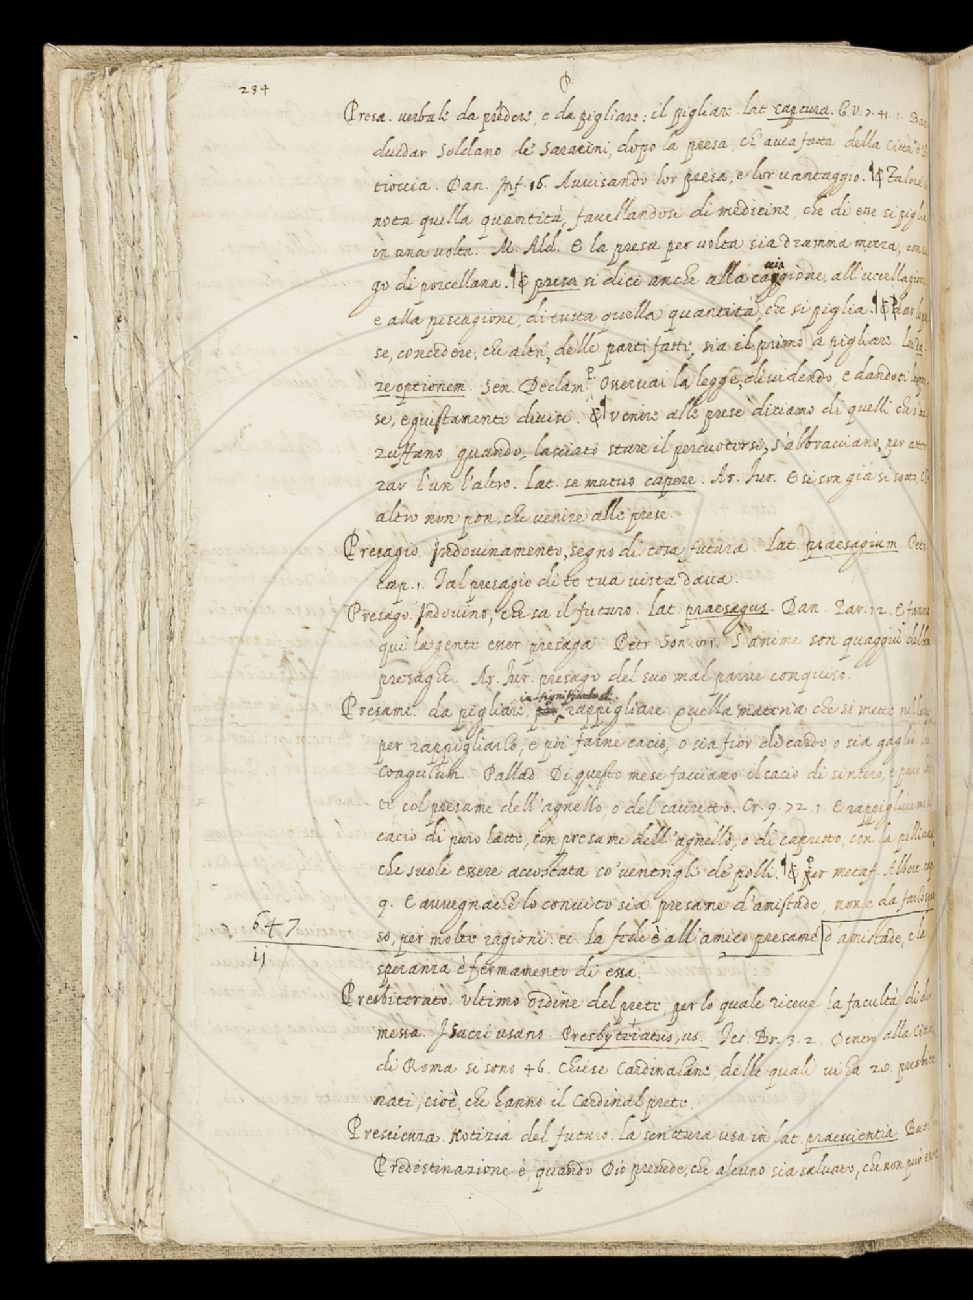 234
P
Presa. verbale da prẽdere, e da pigliare: il pigliare. lat. captura. G. V. 7. 41. 1.
duedar Soldano de Saracini, dopo la presa, ch' avea fatta della Città d'
tioccia. Dan. Inf. 16. Avvisando lor presa, e lor vantaggio. ¶ & Talora
nota quella quantità, favellandosi di medicine, che di esse si piglia
in una volta. M. Ald. E la presa per volta sia dramma mezza, con
go di porcellana. ¶ & presa si dice anche alla caccagione, all' uccellagione,
e alla pescagione, di tutta quella quantità, che si piglia. ¶ & Dar le
se, concedere, che altri, delle parti fatte, sia il primo a pigliare. lat. da
re optionem. Sen. Declam. P. Osservai la legge, dividendo, e dandoti le
se, egiustamente divise. & ¶ venire alle prese diciamo di quelli che
zuffano, quando, lasciato stare il percuotersi, s' abbracciano, per atter
rar l'un l'altro. lat. se mutuo capere. Ar. Fur. E se son già si sotto, ch'
altro non pon, che venire alle prese.
Presagio. Indovinamento, segno di cosa futura. lat. praesagium. Petr.
cap. 1. Tal presagio di te tua vista dava.
Presago. Indovino, che sa il futuro. lat. praesagus. Dan. Par. 12. E fanno
qui la gente esser presaga. Petr. Son. S' anime son quaggiù del ben
presaghe. Ar. Fur. presago del suo mal parve conquiso.
in significato di
Presame. da pigliare, rappigliare. Quella materia che si mette nel latte
per rappigliarlo, e poi farne cacio, o sia fior di cardo, o sia gaglio. lat.
coagulum. Pallad. Di questo mese facciamo il cacio di sincero, e puro lat
te col presame dell' agnello, o del cavretto. Cr. 9. 72. 1. E rappigliere
cacio di puro latte, con presame dell' agnello, o di capretto, con la pellicola,
che suole essere accostata co' ventrigli de polli. ¶ & per metaf. Albert. cap.
9. E avvegnachè lo convito sia presame d' amistade, non è da farlo spes
so, per molte ragioni. ec. la fede è all' amico presame d' amistade, e la
647
ij
speranza è fermamento di essa.
Presbiterato. Ultimo ordine del prete, per lo quale riceve la facultà di dir
messa. I sacri usano Presbyteriatus, us. Tes. Br. 3. 2. Dentro alla Città
di Roma si sono 46. Chiese Cardinalane, delle quali vi ha 28. presbite
nati, cioè, che hanno il Cardinal prete.
Prescienza. Notizia del futuro. la scrittura usa in lat. praescientia. But.
Predestinazione è, quando Dio prevede, che alcuno sia salvato, che non può